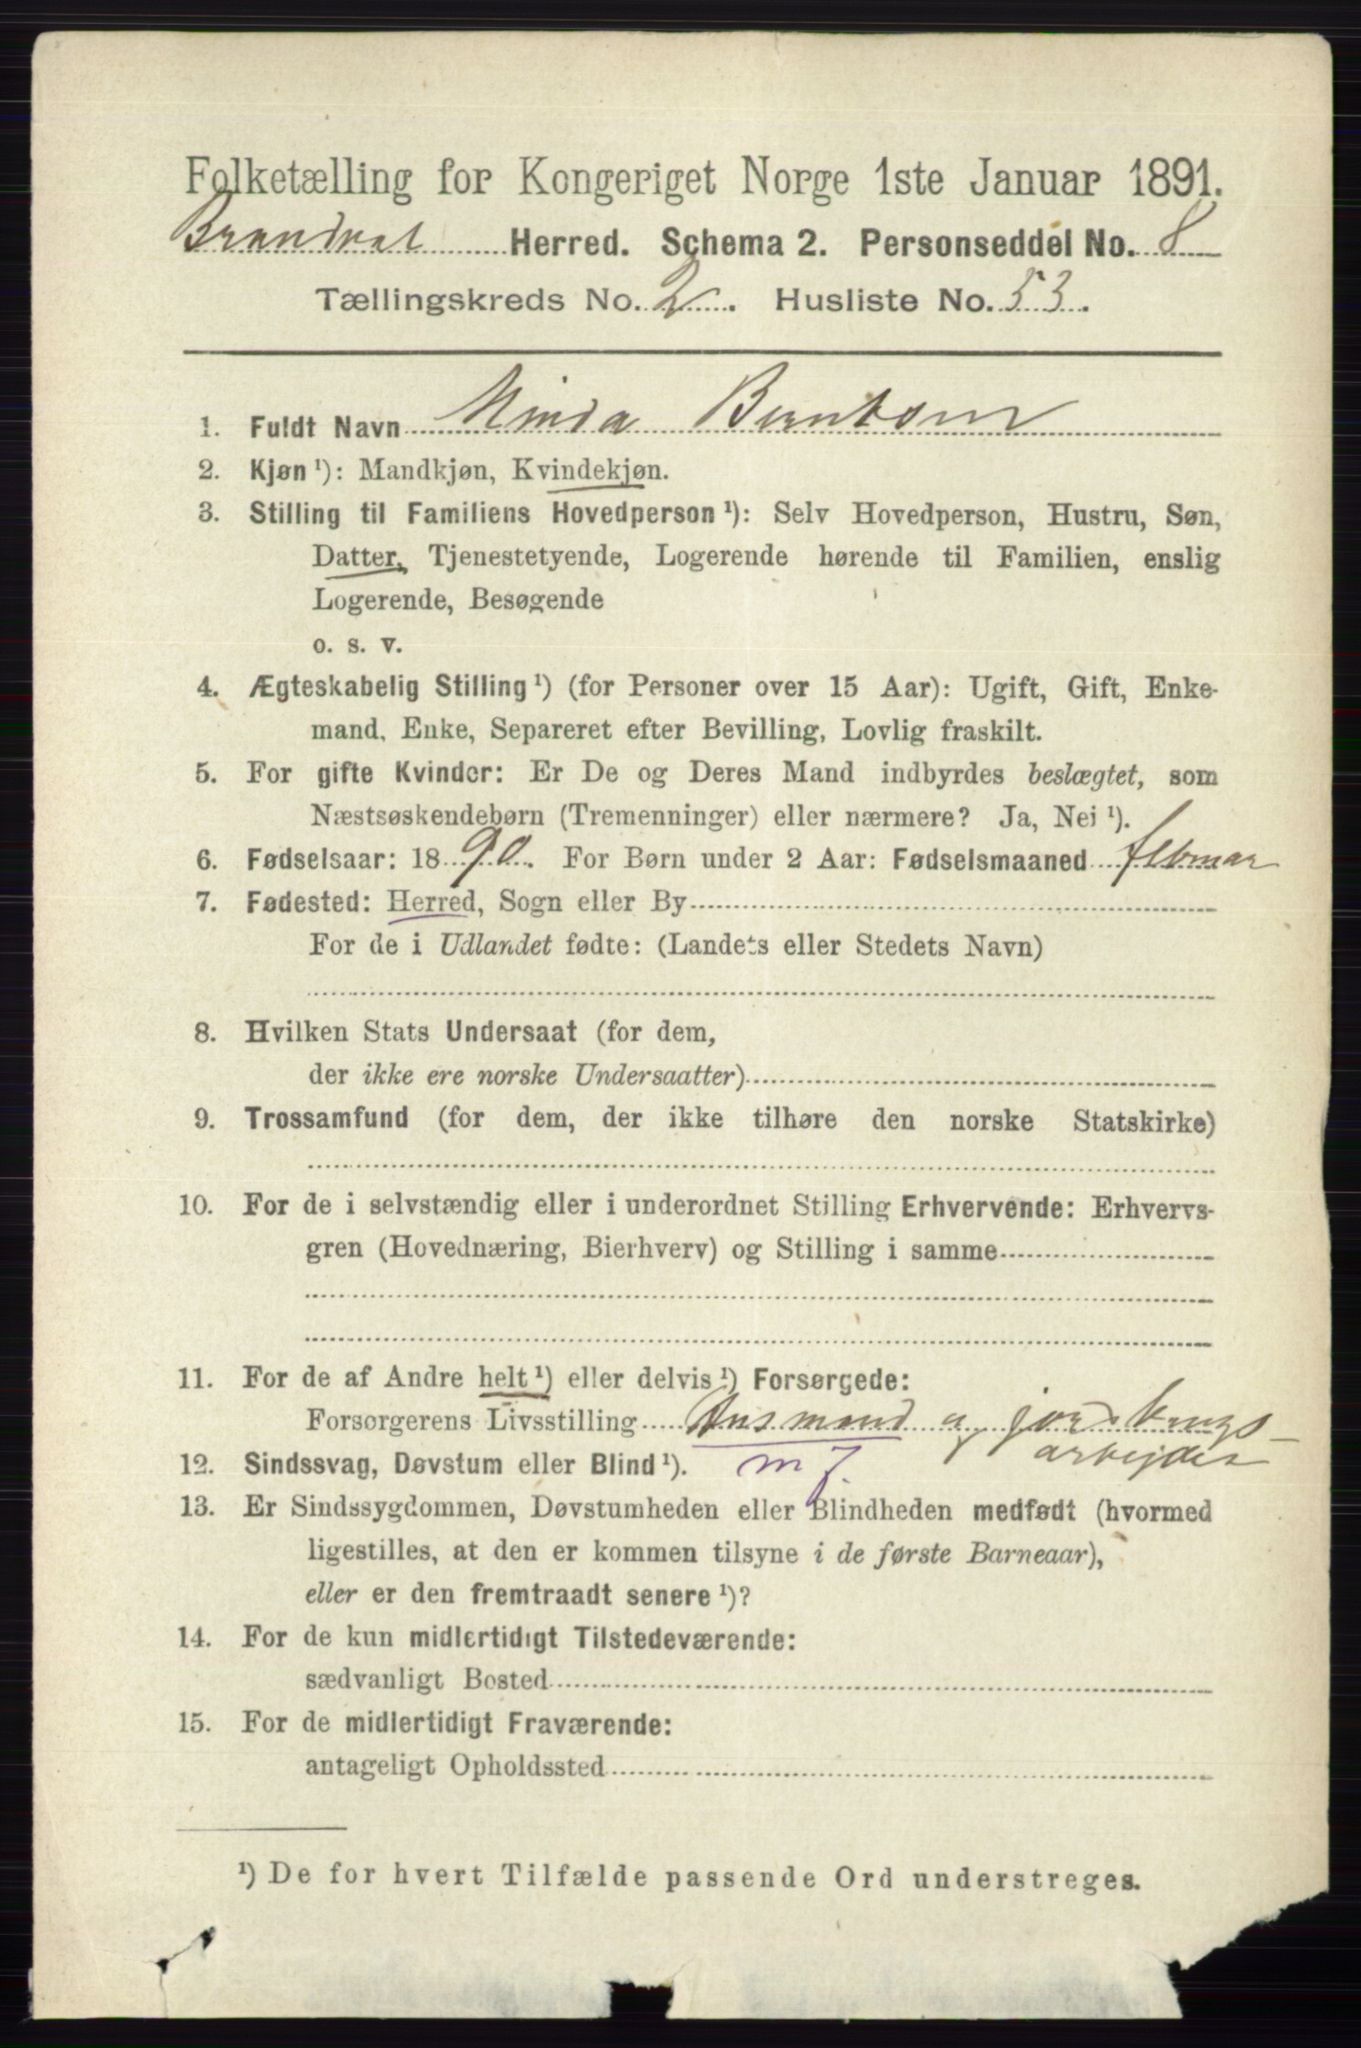 Folketælling for Kongeriget Norge 1ste Januar 1891.
Brandval Herred. Schema 2. Personseddel No. 8
Tællingskreds No. 2. Husliste No. 53.
1. Fuldt Navn Minda Berntsen
2. Kjøn ¹): Mandkjøn, Kvindekjøn.
3. Stilling til Familiens Hovedperson ¹): Selv Hovedperson, Hustru, Søn,
Datter, Tjenestetyende, Logerende hørende til Familien, enslig
Logerende, Besøgende
o. s. v.
4. Ægteskabelig Stilling ¹) (for Personer over 15 Aar): Ugift, Gift, Enke-
mand, Enke, Separeret efter Bevilling, Lovlig fraskilt.
5. For gifte Kvinder: Er De og Deres Mand indbyrdes beslægtet, som
Næstsøskendebørn (Tremenninger) eller nærmere? Ja, Nei ¹).
6. Fødselsaar: 1890. For Børn under 2 Aar: Fødselsmaaned februar
7. Fødested: Herred, Sogn eller By
For de i Udlandet fødte: (Landets eller Stedets Navn)
8. Hvilken Stats Undersaat (for dem,
der ikke ere norske Undersaatter)
9. Trossamfund (for dem, der ikke tilhøre den norske Statskirke)
10. For de i selvstændig eller i underordnet Stilling Erhvervende: Erhvervs-
gren (Hovednæring, Bierhverv) og Stilling i samme
11. For de af Andre helt ¹) eller delvis ¹) Forsørgede:
Forsørgerens Livsstilling Husmand og jordbrugs-
arbejder
12. Sindssvag, Døvstum eller Blind ¹). m j.
13. Er Sindssygdommen, Døvstumheden eller Blindheden medfødt (hvormed
ligestilles, at den er kommen tilsyne i de første Barneaar),
eller er den fremtraadt senere ¹)?
14. For de kun midlertidigt Tilstedeværende:
sædvanligt Bosted
15. For de midlertidigt Fraværende:
antageligt Opholdssted
¹) De for hvert Tilfælde passende Ord understreges.